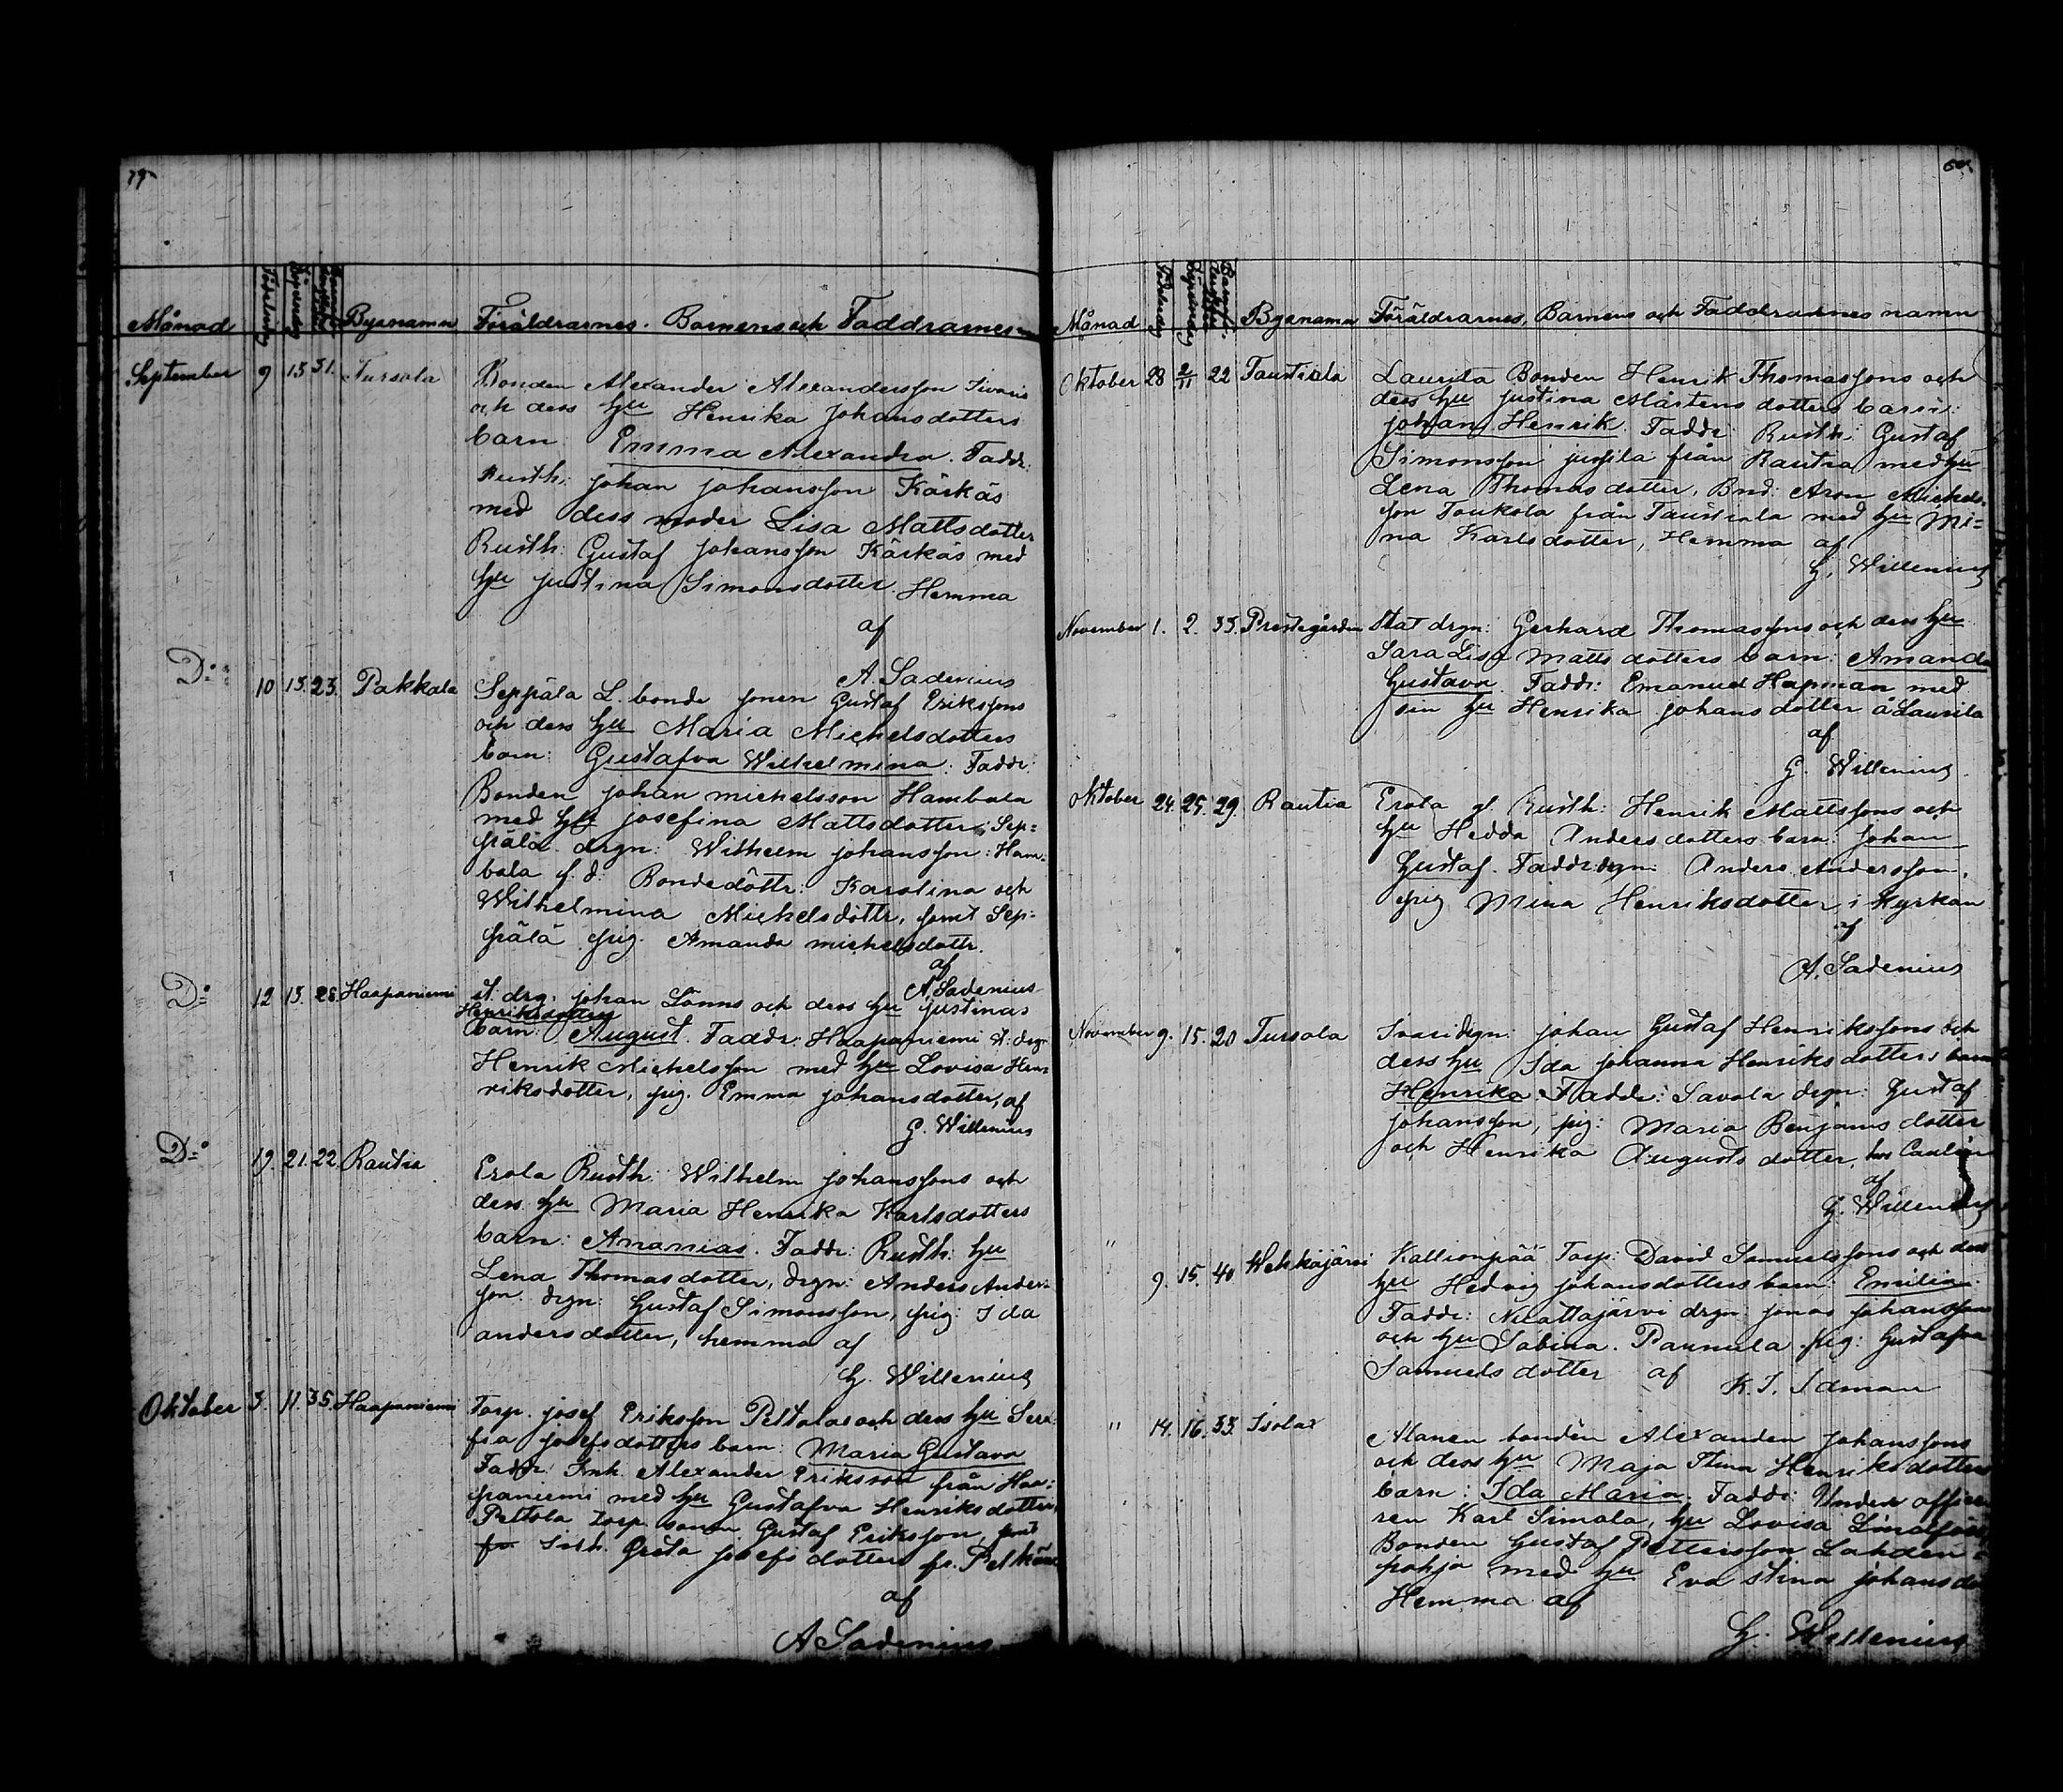 79
Månad Födelsedag Döpelsedag Bysnamn Föräldrarnes. Barnens och Faddrarnes
September 9 15 31. Tursola Bonden Alexander Alexandersson Iivaris
och dess hu Henrika Johansdotters
barn: Emma Alexandra. Faddr:
Rusth: Johan Johansson Kärkäs
med dess moder Lisa Mattsdotter
Rusth: Gustaf Johansson Kärkäs med
hu Justina Simonsdotter. Hemma
af
A. Sadenius
Do: 10 15. 23. Pakkala Seppälä L. bonde sonen Gustaf Erikssons
och dess hu Maria Michelsdotters
barn: Gustafva Wilhelmina. Faddr:
Bonden Johan Michelsson Hambala
med hu Josefina Mattsdotter; Sep=
pälä drgn: Wilhelm Johansson: Ham=
bala f. d. Bondedöttr: Karolina och
Wilhelmina Michelsdöttr, samt Sep=
pälä pig. Amanda Michelsdottr.
af
A. Sadenius
Do 12 13. 28. Haapaniemi st. drg. Johan Lönns och dess hu Justinas
Henriksdotters
barn: August. Faddr: Haapaniemi st: drgn
Henrik Michelsson med hu Lovisa Hen=
riksdotter, pig. Emma Johansdotter, af
G. Willenius
Do 19. 21. 22. Rautia Erola Rusth: Wilhelm Johanssons och
dess hu Maria Henrika Karlsdotters
barn: Ananias. Faddr: Rusth: hu
Lena Thomasdotter, drgn: Anders Anders=
son. drgn: Gustaf Simonsson, pig: Ida
andersdotter, hemma af
G. Willenius
Oktober 3. 11. 35. Haapaniemi Torp. Josef Eriksson Peltolas och dess hu Sera=
fia Josefsdotters barn: Maria Gustava
Faddr: Inh. Alexander Eriksson från Haa=
paniemi med hu Gustafva Henriksdotter,
Peltola torp. sonen Gustaf Eriksson, samt
Greta Josefsdotter fr.
af
A Sadenius
Månad Födelsedag Döpelsedag Bysnamn Föräldrarnes, Barnens och Faddrarnes namn
Oktober 28 2/11 22 Taustiala Laurila Bonden Henrik Thomassons och
dess hu Justina Mårtensdotters barn:
Johan Henrik. Faddr: Rusth: Gustaf
Simonsson Jussila från Rautia med hu
Lena Thomasdotter, Bnd: Aron Michels=
son Toukola från Taustiala med hu Mi=
na Karlsdotter, Hemma af
G. Willenius
November 1. 2. 33. Prestegården Stat drgn: Gerhard Thomassons och dess hu
Sara Lisa Mattsdotters barn: Amanda
Gustava. Faddr: Emanuel Hapman med
sin hu Henrika Johansdotter å Laurila
af
G. Willenius
Oktober 24. 25. 29. Rautia Erola gl. Rusth: Henrik Mattssons och
hu Hedda Andersdotters barn: Johan
Gustaf. Faddr: drgn: Anders Andersson,
pig Mina Henriksdotter, i Kyrkan
af
A. Sadenius
November 9. 15. 20 Tursola Iivari drgn: Johan Gustaf Henrikssons och
dess hu Ida Johanna Henriksdotters barn
Henrika. Faddr: Savola drgn: Gustaf
Johansson, pig: Maria Benjamsdotter
och Henrika Augustsdotter, hos
af
G. Willenius
" 9. 15. 40 Wehkajärvi Kallionpää Torp: David Samuelssons och dess
hu Hedvig Johansdotters barn: Emilia.
Faddr: drgn: Jonas Johansson
och hu Sabina. Pannula pig: Gustafva
Samuelsdotter af K. J. Idman
" 14. 16. 33. Isolax Alanen bonden Alexander Johanssons
och dess hu Maja Stina Henriksdotters
barn: Ida Maria. Faddr: Under office=
ren Karl Simola, hu Lovisa
Bonden Gustaf Pettersson Lahden=
pohja med hu Eva Stina Johansdo
Hemma af
G. Willenius